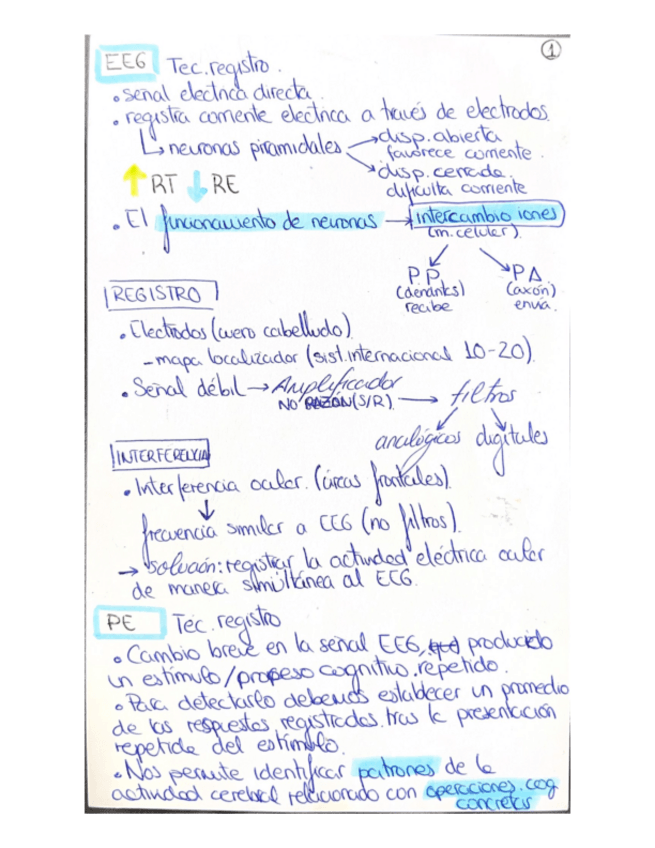 1
EEG Tec. registro.
• señal electrica directa.
• registra corriente electrica a través de electrodos.
↳ neuronas piramidales → disp. abierta
favorece corriente.
→ disp. cerrada.
dificulta corriente
↑ RT ↓ RE
• El funcionamiento de neuronas → intercambio iones
(m. celular).
P.P. PA
(dendritas) (axón)
recibe envía.
REGISTRO
• Electrodos (cuero cabelludo).
- mapa localizador (sist. internacional 10-20).
• Señal débil → Amplificador → filtros
NO RAZÓN (S/R)
analógicos digitales
INTERFERENCIA
• Interferencia ocular. (áreas frontales).
↓
frecuencia similar a EEG (no filtros).
→ solución: registrar la actividad eléctrica ocular
de manera simultánea al EEG.
PE Tec. registro
• Cambio breve en la señal EEG, producido
un estímulo/proceso cognitivo. repetido.
• Para detectarlo debemos establecer un promedio
de las respuestas registradas. tras la presentación
repetida del estímulo.
• Nos permite identificar patrones de la
actividad cerebral relacionado con operaciones. cog
concretas